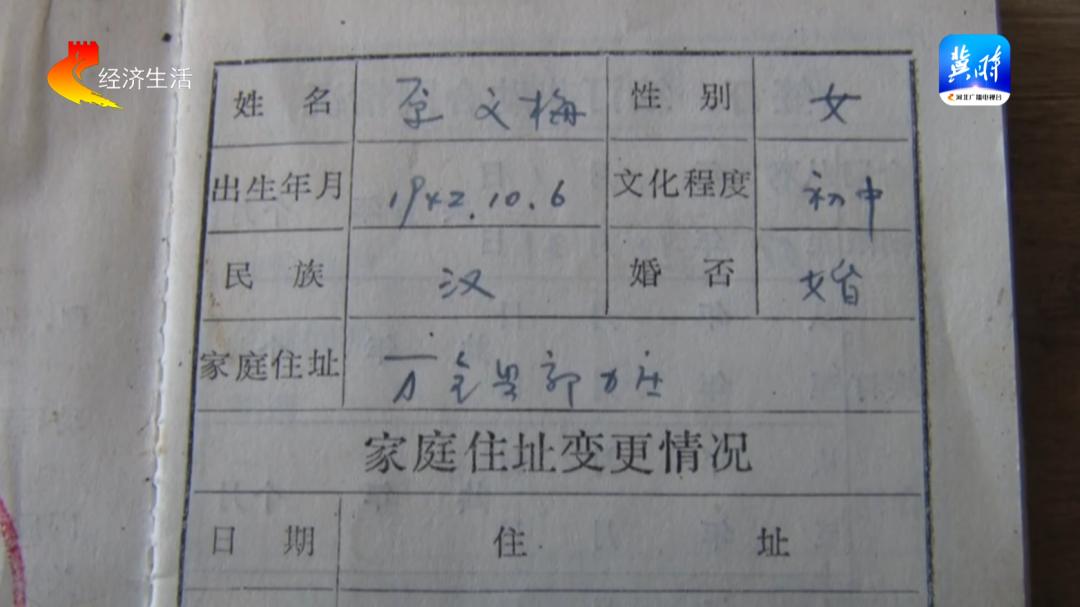 经济生活
冀时
河北广播电视台
姓 名 文梅 性 别 女
出生年月 1942.10.6 文化程度 初中
民 族 汉 婚 否 婚
家庭住址 万全县郭力庄
家庭住址变更情况
日 期 住 址